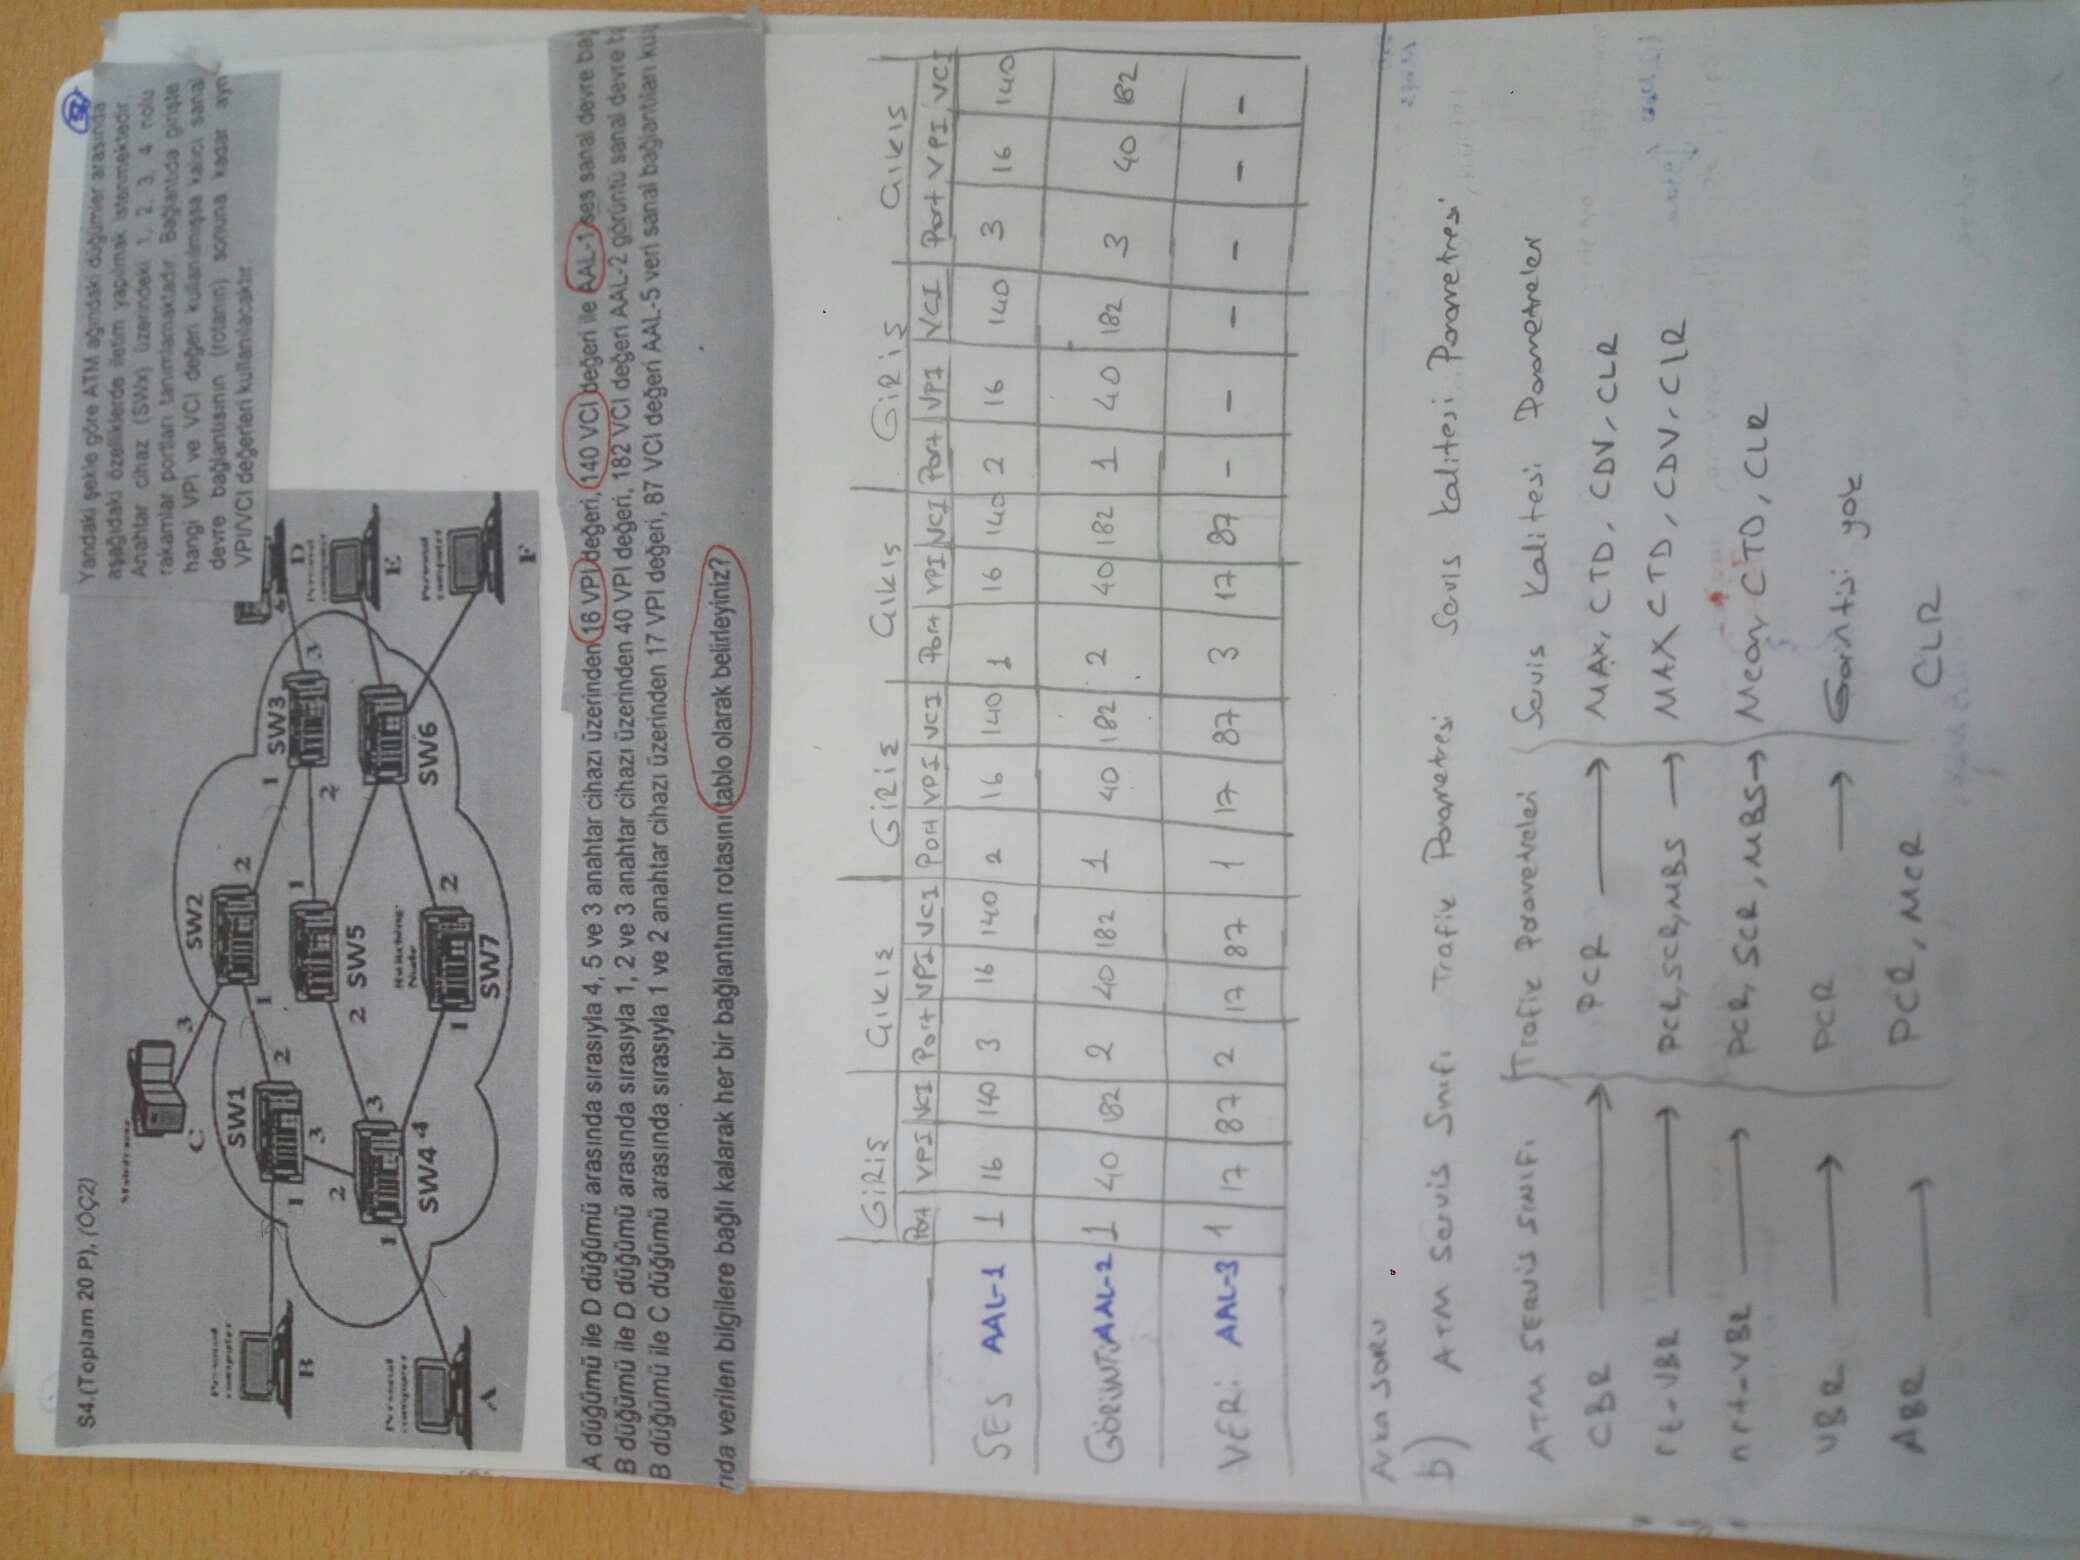 S4.(Toplam 20 P), (ÖÇ2)
Yandaki şekle göre ATM ağındaki düğümler arasında
aşağıdaki özelliklerde iletim yapılmak istenmektedir.
Anahtar cihaz (SWx) üzerindeki 1, 2, 3, 4 nolu
rakamlar portları tanımlamaktadır. Bağlantıda girişte
hangi VPI ve VCI değeri kullanılmışsa kalıcı sanal
devre bağlantısının (rotanın) sonuna kadar ayn
VPI/VCI değerleri kullanılacaktır.
Mainframe
C
3
SW2
Personal
computer
SW1
2
B
1
2
1
1
SW3
3
1
2
3
D
2
SW5
2
Personal
computer
Personal
computer
1
3
Switching
Node
E
SW4
4
SW6
Personal
computer
1
2
A
SW7
F
A düğümü ile D düğümü arasında sırasıyla 4, 5 ve 3 anahtar cihazı üzerinden 16 VPI değeri, 140 VCI değeri ile AAL-1 ses sanal devre
B düğümü ile D düğümü arasında sırasıyla 1, 2 ve 3 anahtar cihazı üzerinden 40 VPI değeri, 182 VCI değeri AAL-2 görüntü sanal devre
B düğümü ile C düğümü arasında sırasıyla 1 ve 2 anahtar cihazı üzerinden 17 VPI değeri, 87 VCI değeri AAL-5 veri sanal bağlantıları
rıda verilen bilgilere bağlı kalarak her bir bağlantının rotasını tablo olarak belirleyiniz?
GİRİŞ ÇIKIŞ GİRİŞ ÇIKIŞ GİRİŞ ÇIKIŞ
Port VPI VCI Port VPI VCI Port VPI VCI Port VPI VCI Port VPI VCI Port VPI VCI
SES AAL-1 1 16 140 3 16 140 2 16 140 1 16 140 2 16 140 3 16 140
GÖRÜNTÜ AAL-2 1 40 182 2 40 182 1 40 182 2 40 182 1 40 182 3 40 182
VERİ AAL-3 1 17 87 2 17 87 1 17 87 3 17 87 - - - - - -
Arka SORU
b) ATM Servis Sınıfı Trafik Parametresi Servis Kalitesi Parametresi
ATM SERVİS SINIFI Trafik Parametreleri Servis Kalitesi Parametreler
CBR → PCR → MAX, CTD, CDV, CLR
rt-VBR → PCR, SCR, MBS → MAX CTD, CDV, CLR
nrt-VBR → PCR, SCR, MBS → Mean, CTD, CLR
UBR → PCR → Garintisi yok
ABR → PCR, MCR CLR